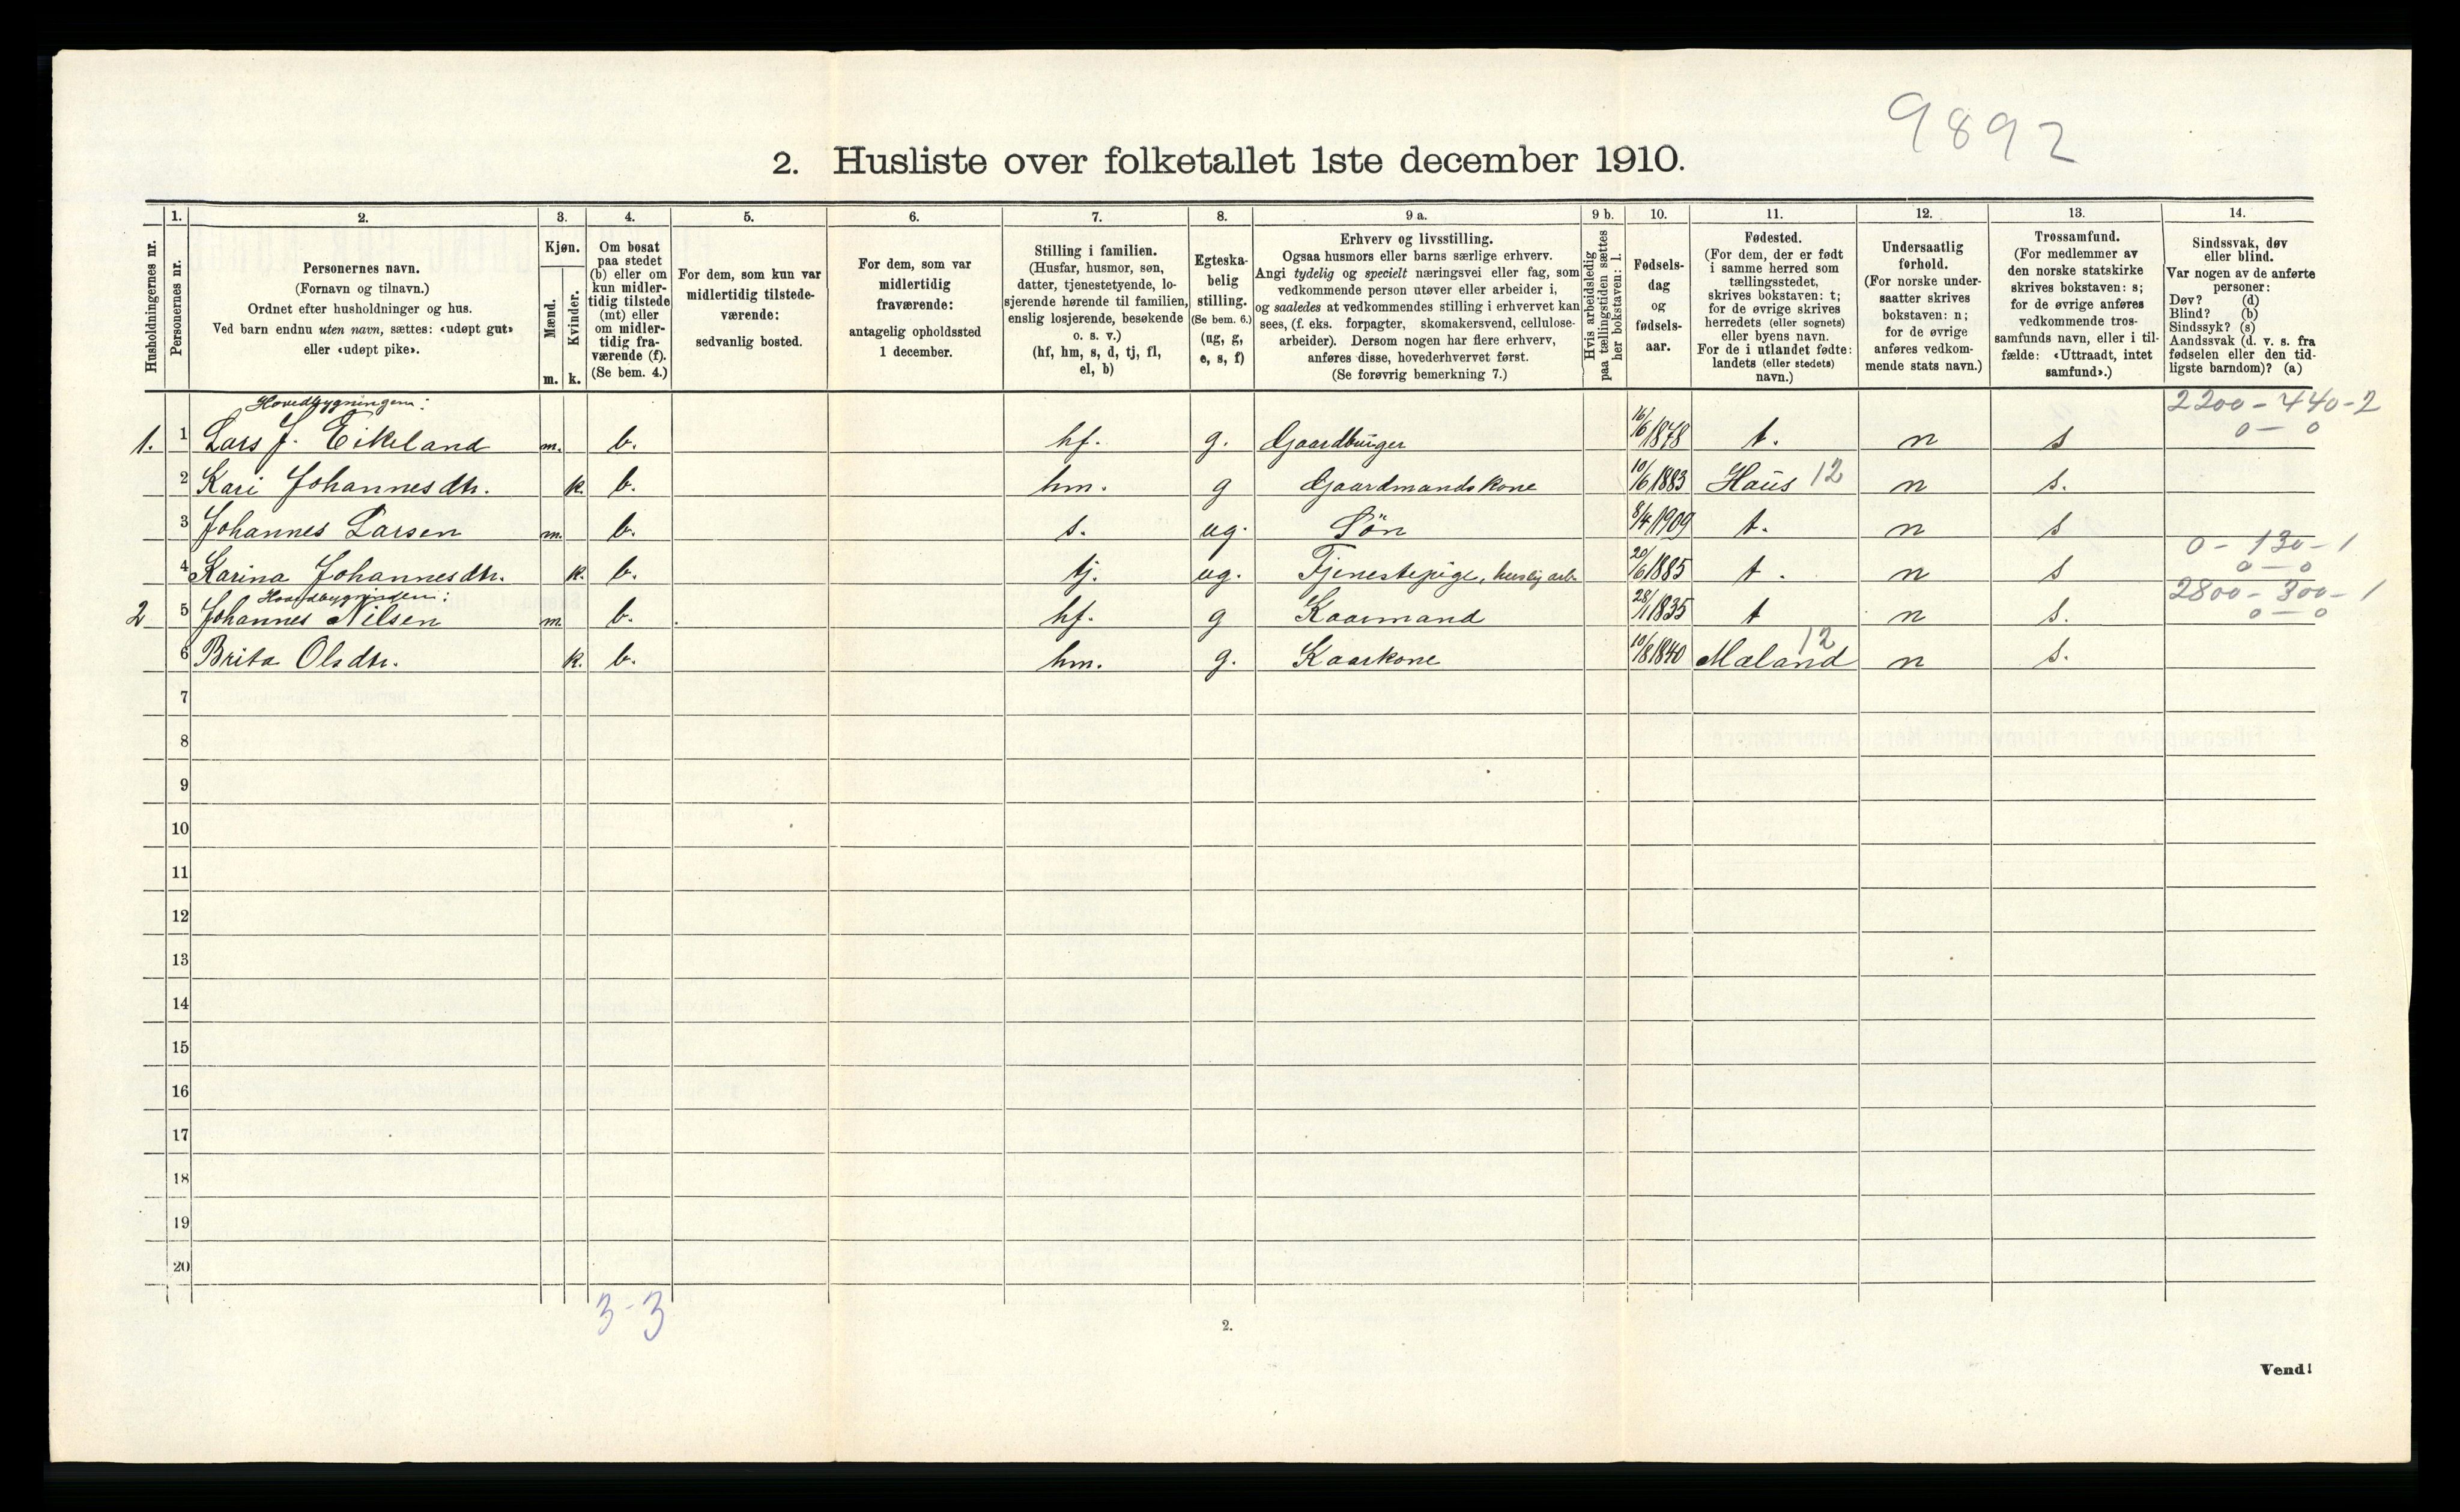 9892
2. Husliste over folketallet 1ste december 1910.
Husholdningernes nr.
1.
Personernes nr.
2.
Personernes navn.
(Fornavn og tilnavn.)
Ordnet efter husholdninger og hus.
Ved barn endnu uten navn, sættes: «udøpt gut»
eller «udøpt pike».
3.
Kjøn.
Mænd.
Kvinder.
m. k.
4.
Om bosat
paa stedet
(b) eller om
kun midler-
tidig tilstede
(mt) eller
om midler-
tidig fra-
værende (f).
(Se bem. 4.)
5.
For dem, som kun var
midlertidig tilstede-
værende:
sedvanlig bosted.
6.
For dem, som var
midlertidig
fraværende:
antagelig opholdssted
1 december.
7.
Stilling i familien.
(Husfar, husmor, søn,
datter, tjenestetyende, lo-
sjerende hørende til familien,
enslig losjerende, besøkende
o. s. v.)
(hf, hm, s, d, tj, fl,
el, b)
8.
Egteska-
belig
stilling.
(Se bem. 6.)
(ug, g,
e, s, f)
9 a.
Erhverv og livsstilling.
Ogsaa husmors eller barns særlige erhverv.
Angi tydelig og specielt næringsvei eller fag, som
vedkommende person utøver eller arbeider i,
og saaledes at vedkommendes stilling i erhvervet kan
sees, (f. eks. forpagter, skomakersvend, cellulose-
arbeider). Dersom nogen har flere erhverv,
anføres disse, hovederhvervet først.
(Se forøvrig bemerkning 7.)
9 b.
Hvis arbeidsledig
paa tællingstiden sættes
her bokstaven: l.
10.
Fødsels-
dag
og
fødsels-
aar.
11.
Fødested.
(For dem, der er født
i samme herred som
tællingsstedet,
skrives bokstaven: t;
for de øvrige skrives
herredets (eller sognets)
eller byens navn.
For de i utlandet fødte:
landets (eller stedets)
navn.)
12.
Undersaatlig
forhold.
(For norske under-
saatter skrives
bokstaven: n;
for de øvrige
anføres vedkom-
mende stats navn.)
13.
Trossamfund.
(For medlemmer av
den norske statskirke
skrives bokstaven: s;
for de øvrige anføres
vedkommende tros-
samfunds navn, eller i til-
fælde: «Uttraadt, intet
samfund».)
14.
Sindssvak, døv
eller blind.
Var nogen av de anførte
personer:
Døv? (d)
Blind? (b)
Sindssyk? (s)
Aandssvak (d. v. s. fra
fødselen eller den tid-
ligste barndom)? (a)
Hovedbygningen: 2200 - 440 - 2
1. 1 Lars J. Eikeland m. b. hf. g. Gaardbruger 16/6 1878 t. n s 0 - 0
2 Kari Johannesdtr. k. b. hm. g Gaardmandskone 10/6 1883 Haus 12 n s.
3 Johannes Larsen m. b. s. ug. Søn 8/4 1909 t. n s
0 - 130 - 1
4 Karina Johannesdtr. k. b. tj. ug. Tjenestepige, huslig arb. 20/6 1885 t. n s 0 - 0
Hovedbygningen: 2800 - 300 - 1
2 5 Johannes Nilsen m. b. hf. g Kaarmand 28/1 1835 t n s. 0 - 0
6 Brita Olsdtr. k. b. hm. g. Kaarkone 10/8 1840 Mæland 12 n s.
7
8
9
10
11
12
13
14
15
16
17
18
19
20
3-3
2.
Vend!